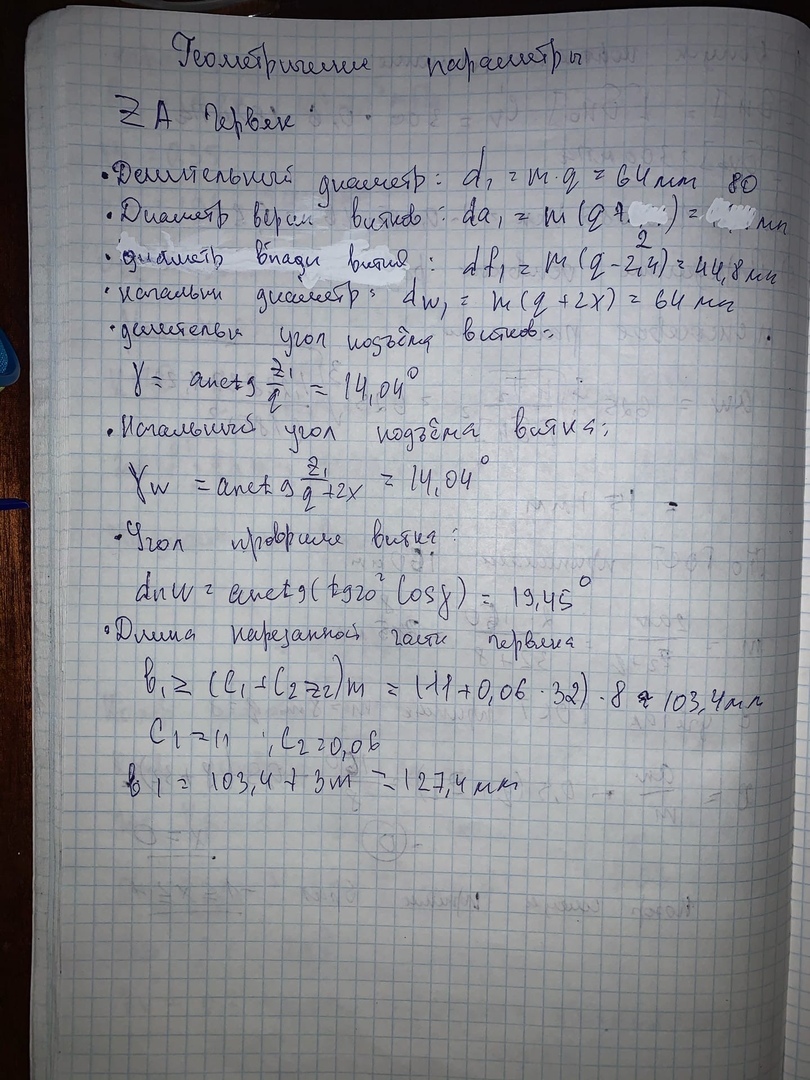 Геометрические параметры
ZA Червяк :
• Делительный диаметр : d₁ = m·q = 64мм
• Диаметр верши витков : da₁ = m(q + 2) = 80 мм
• диаметр впади витка : df₁ = m(q-2,4) = 44,8мм
• начальн диаметр : dw₁ = m(q+2x) = 64 мм
• делительн угол подъёма витков :
γ = arctg z₁/q = 14,04°
• Начальный угол подъёма витка :
γw = arctg z₁/q+2x = 14,04°
• Угол профиля витка :
αnw = arctg(tg20° cosγ) = 19,45°
• Длина нарезанной части червяка
b₁ ≥ (C₁+C₂z₂)m = (11+0,06·32)·8 ≈ 103,4мм
C₁ = 11 ; C₂=0,06
b₁ = 103,4 + 3m = 127,4мм